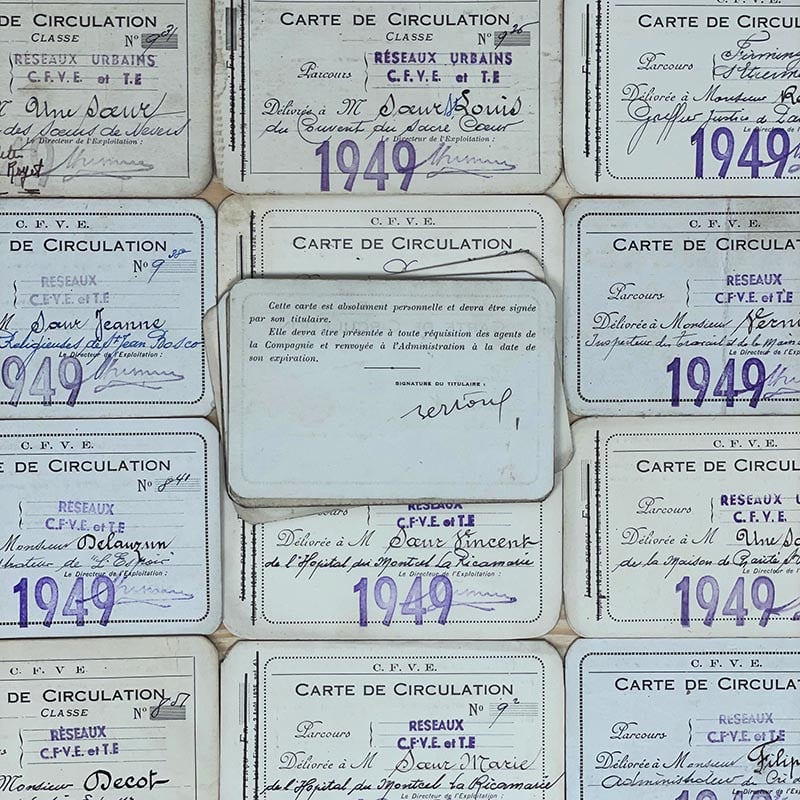 CARTE DE CIRCULATION
CLASSE Nº 9
RÉSEAUX URBAINS
C.F.V.E. et T.E
Une Sœur
des Sœurs de Nevers
Le Directeur de l'Exploitation :
CARTE DE CIRCULATION
CLASSE Nº 9
Parcours
RÉSEAUX URBAINS
C.F.V.E. et T.E
Délivrée à M Sœur St Louis
du Couvent du Sacré Cœur
Le Directeur de l'Exploitation :
1949
CARTE DE CIRCUL
Parcours
Firminy
Délivrée à Monsieur
Greffier Justice de
Le Directeur de
1949
C. F. V. E.
DE CIRCULATION
Nº 9
RESEAUX
C.F.V.E. et T.E
M Sœur Jeanne
Religieuses de St Jean Bosco
Le Directeur de l'Exploitation :
949
C. F. V. E.
CARTE DE CIRCULATION
Cette carte est absolument personnelle et devra être signée
par son titulaire.
Elle devra être présentée à toute réquisition des agents de
la Compagnie et renvoyée à l'Administration à la date de
son expiration.
SIGNATURE DU TITULAIRE :
C. F. V. E.
CARTE DE CIRCULAT
Parcours
RESEAUX
C.F.V.E. et T.E
Délivrée à Monsieur
Inspecteur du travail et de la Main
Le Directeur de l'Exploitation :
1949
C. F. V. E.
E DE CIRCULATION
Nº 841
RÉSEAUX
C.F.V.E. et T.E
Monsieur Delauzun
de "L'Espoir"
Le Directeur de l'Exploitation :
1949
RESEAUX
C.F.V.E. et T.E
Délivrée à M Sœur Vincent
de l'Hôpital du Montcel La Ricamarie
Le Directeur de l'Exploitation :
1949
C. F. V. E.
CARTE DE CIRCULAT
Parcours
RESEAUX U
C.F.V.E.
Délivrée à M Une
de la Maison de
Le Directeur de l'Exploitation :
1949
C. F. V. E.
DE CIRCULATION
CLASSE Nº 851
RÉSEAUX
C.F.V.E. et T.E
Monsieur Decot
C. F. V. E.
CARTE DE CIRCULATION
Nº 9
Parcours
RESEAUX
C.F.V.E. et T.E
Délivrée à M Sœur Marie
de l'Hôpital du Montcel La Ricamarie
Le Directeur de l'Exploitation :
C. F. V. E.
CARTE DE CIRCULAT
Parcours
RESEAUX
C.F.V.E. et T.E
Délivrée à Monsieur Filip
administrateur du
Le Directeur de l'Exploitation :